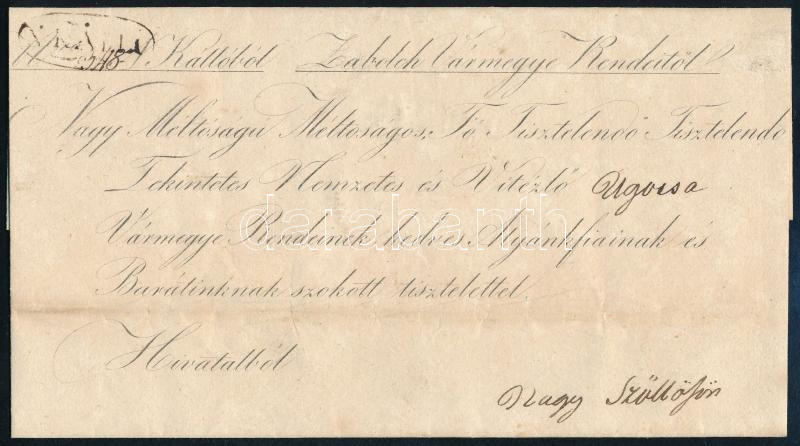 N. Kállóból Zabolch Vármegye Rendeitöl
Nagy Méltóságu Méltoságos, Fő Tisztelendő Tisztelendő
Tekintetes Nemzetes és Vitézlő Ugocsa
Vármegye Rendeinek kedves Atyánkfiainak és
Barátinknak szokott tisztelettel.
darabanth.com
Hivatalból
Nagy Szöllösön